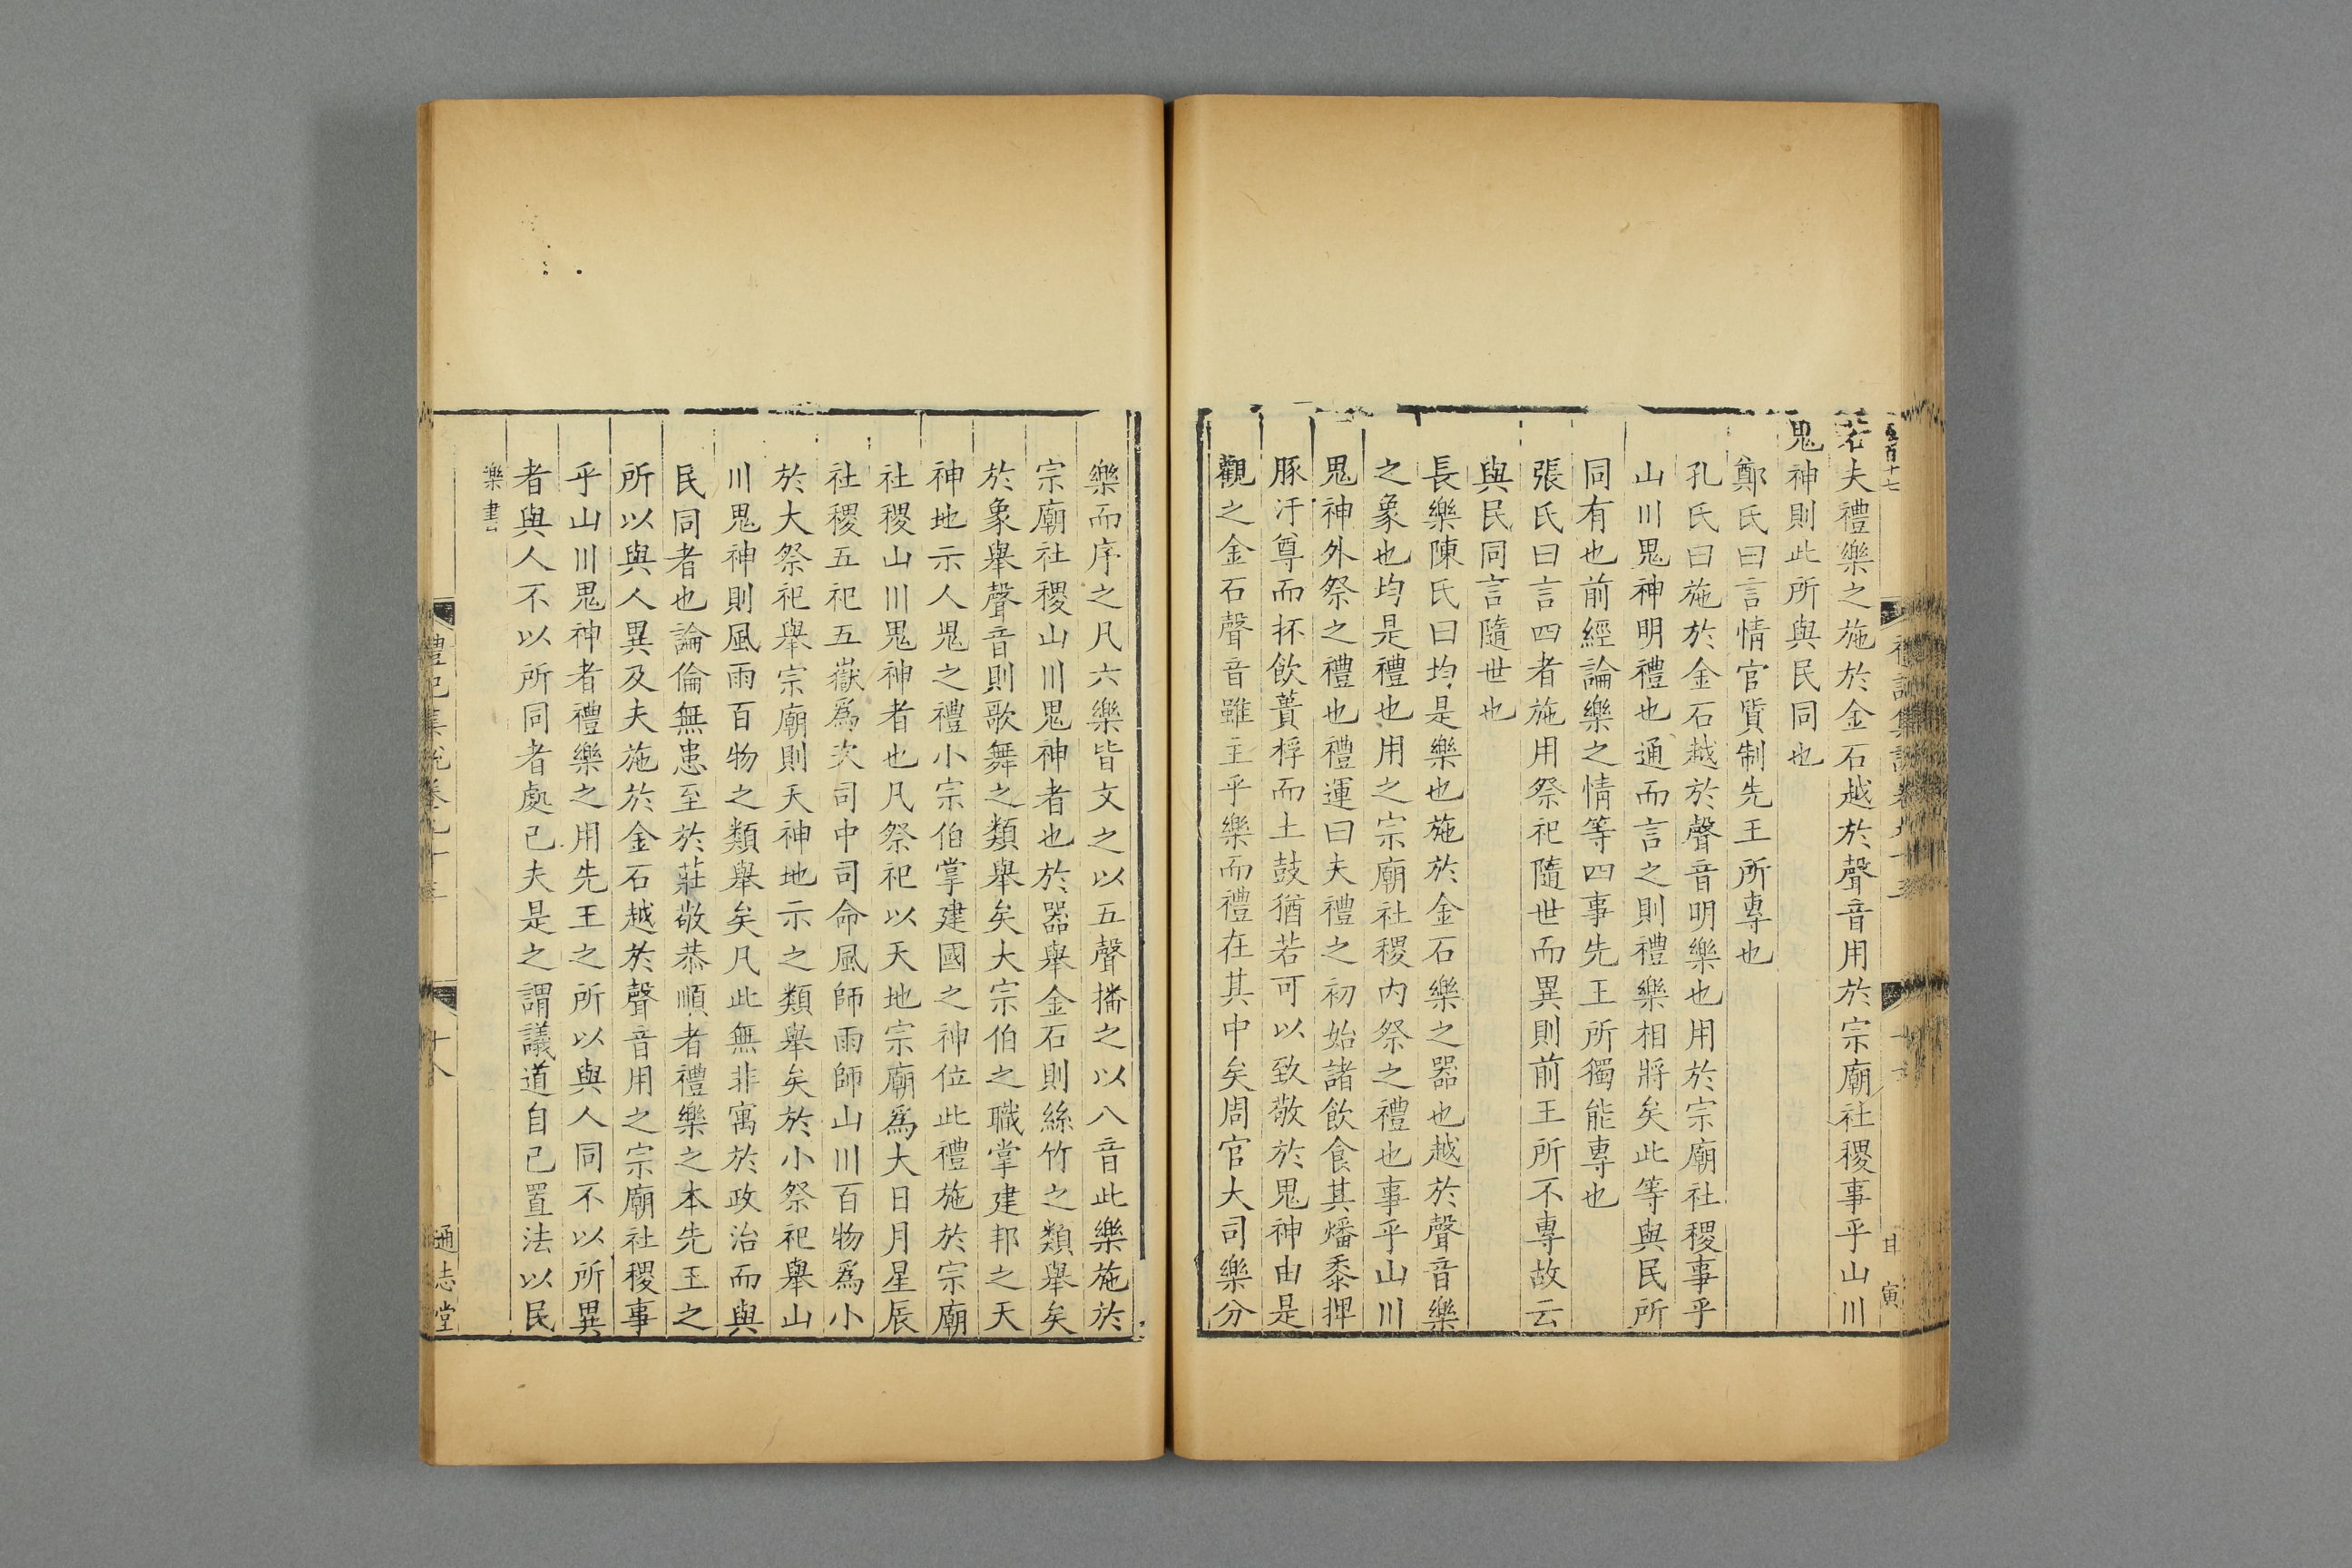 若夫禮樂之施於金石越於聲音用於宗廟社稷事乎山川
鬼神則此所與民同也
鄭氏曰言情官質制先王所專也
孔氏曰施於金石越於聲音明樂也用於宗廟社稷事乎
山川鬼神明禮也通而言之則禮樂相將矣此等與民所
同有也前經論樂之情等四事先王所獨能專也
張氏曰言四者施用祭祀隨世而異則前王所不專故云
與民同言隨世也
長樂陳氏曰均是樂也施於金石樂之器也越於聲音樂
之象也均是禮也用之宗廟社稷内祭之禮也事乎山川
鬼神外祭之禮也禮運曰夫禮之初始諸飲食其燔黍捭
豚汙尊而抔飲蕢桴而土鼓猶若可以致敬於鬼神由是
觀之金石聲音雖主乎樂而禮在其中矣周官大司樂分
樂而序之凡六樂皆文之以五聲播之以八音此樂施於
宗廟社稷山川鬼神者也於器舉金石則絲竹之類舉矣
於象舉聲音則歌舞之類舉矣大宗伯之職掌建邦之天
神地示人鬼之禮小宗伯掌建國之神位此禮施於宗廟
社稷山川鬼神者也凡祭祀以天地宗廟爲大日月星辰
社稷五祀五嶽爲次司中司命風師雨師山川百物爲小
於大祭祀舉宗廟則天神地示之類舉矣於小祭祀舉山
川鬼神則風雨百物之類舉矣凡此無非寓於政治而與
民同者也論倫無患至於莊敬恭順者禮樂之本先王之
所以與人異及夫施於金石越於聲音用之宗廟社稷事
乎山川鬼神者禮樂之用先王之所以與人同不以所異
者與人不以所同者處己夫是之謂議道自己置法以民
樂書
禮記集說卷九十三
十八
通志堂